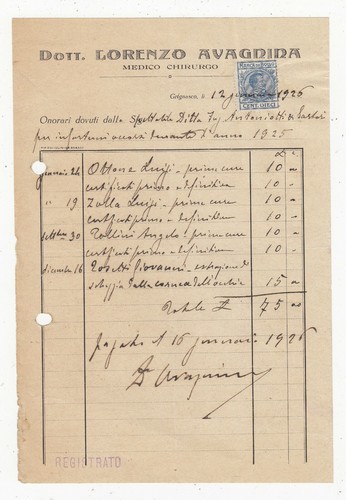 DOTT. LORENZO AVAGNINA
MEDICO CHIRURGO
MARCA DA BOLLO
CENT. DIECI
Grignasco, il 12 gennaio 1926
Onorari dovuti dalla Spettabile Ditta
per infortuni occorsi durante l'anno 1925
£ c
gennaio 24 Ottone Luigi - prime cure 10 "
certificati primo e definitivo 10 "
" 19 Zolla Luigi - prime cure 10 "
certificati primo e definitivo 10 "
settembre 30 Pollini Angelo - prime cure 10 "
certificati primo e definitivo 10 "
dicembre 16 Rosetti Giovanni - estrazione di
scheggia dalla cornea dell'occhio 15 "
Totale £ 75 00
Pagato il 16 gennaio 1926
Dr Avagnina
REGISTRATO